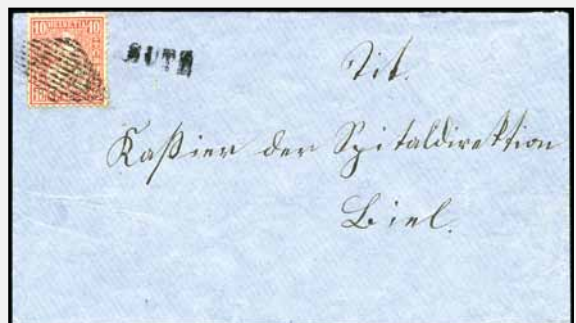 10 HELVETIA 10
Tit.
Kaßier der Spitaldirektion
Biel.